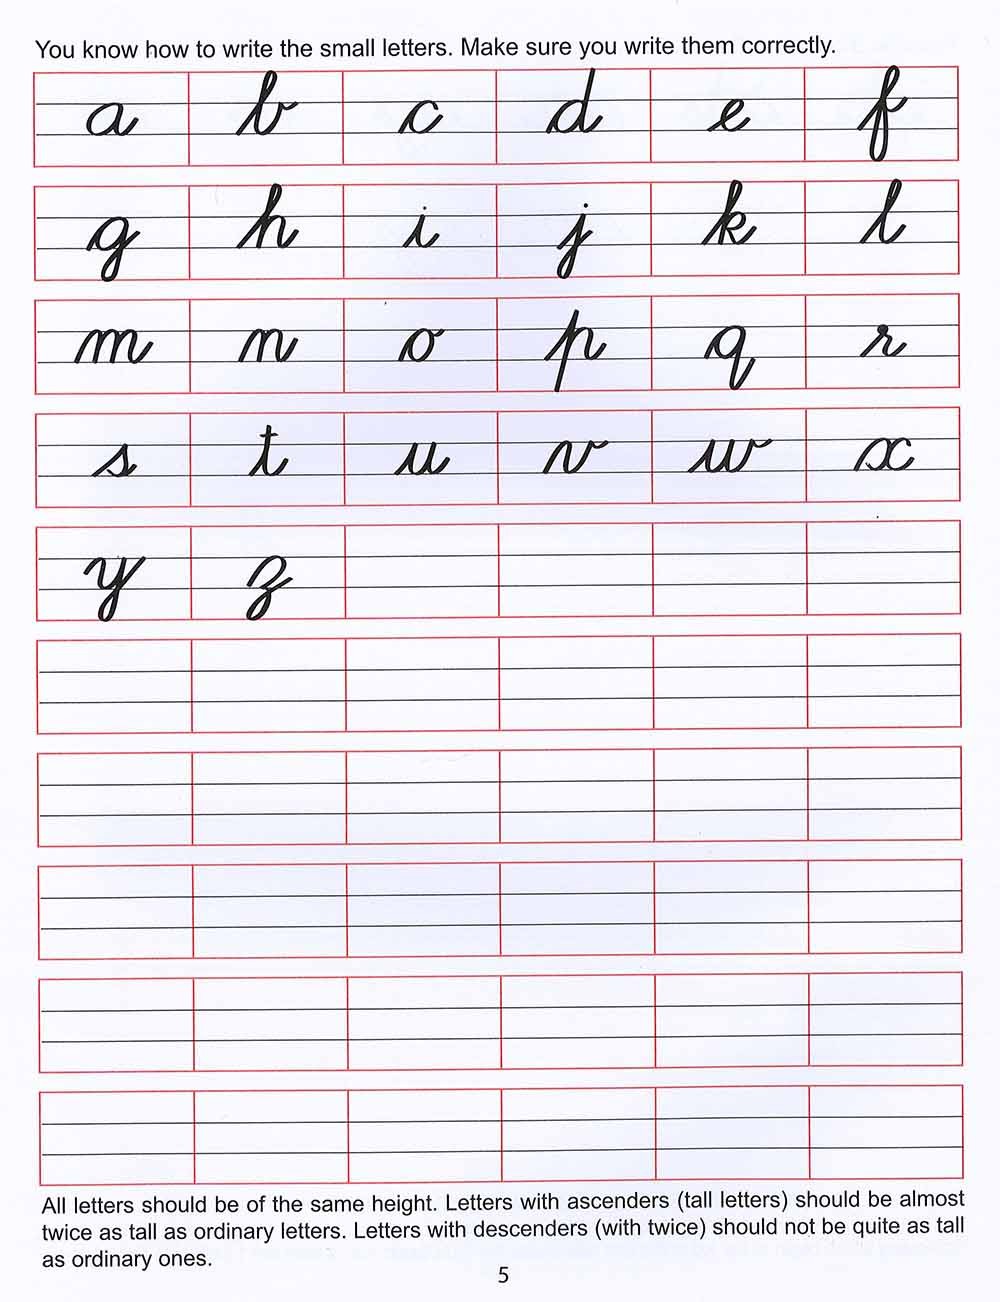 You know how to write the small letters. Make sure you write them correctly.
a b c d e f
g h i j k l
m n o p q r
s t u v w x
y z
All letters should be of the same height. Letters with ascenders (tall letters) should be almost
twice as tall as ordinary letters. Letters with descenders (with twice) should not be quite as tall
as ordinary ones.
5